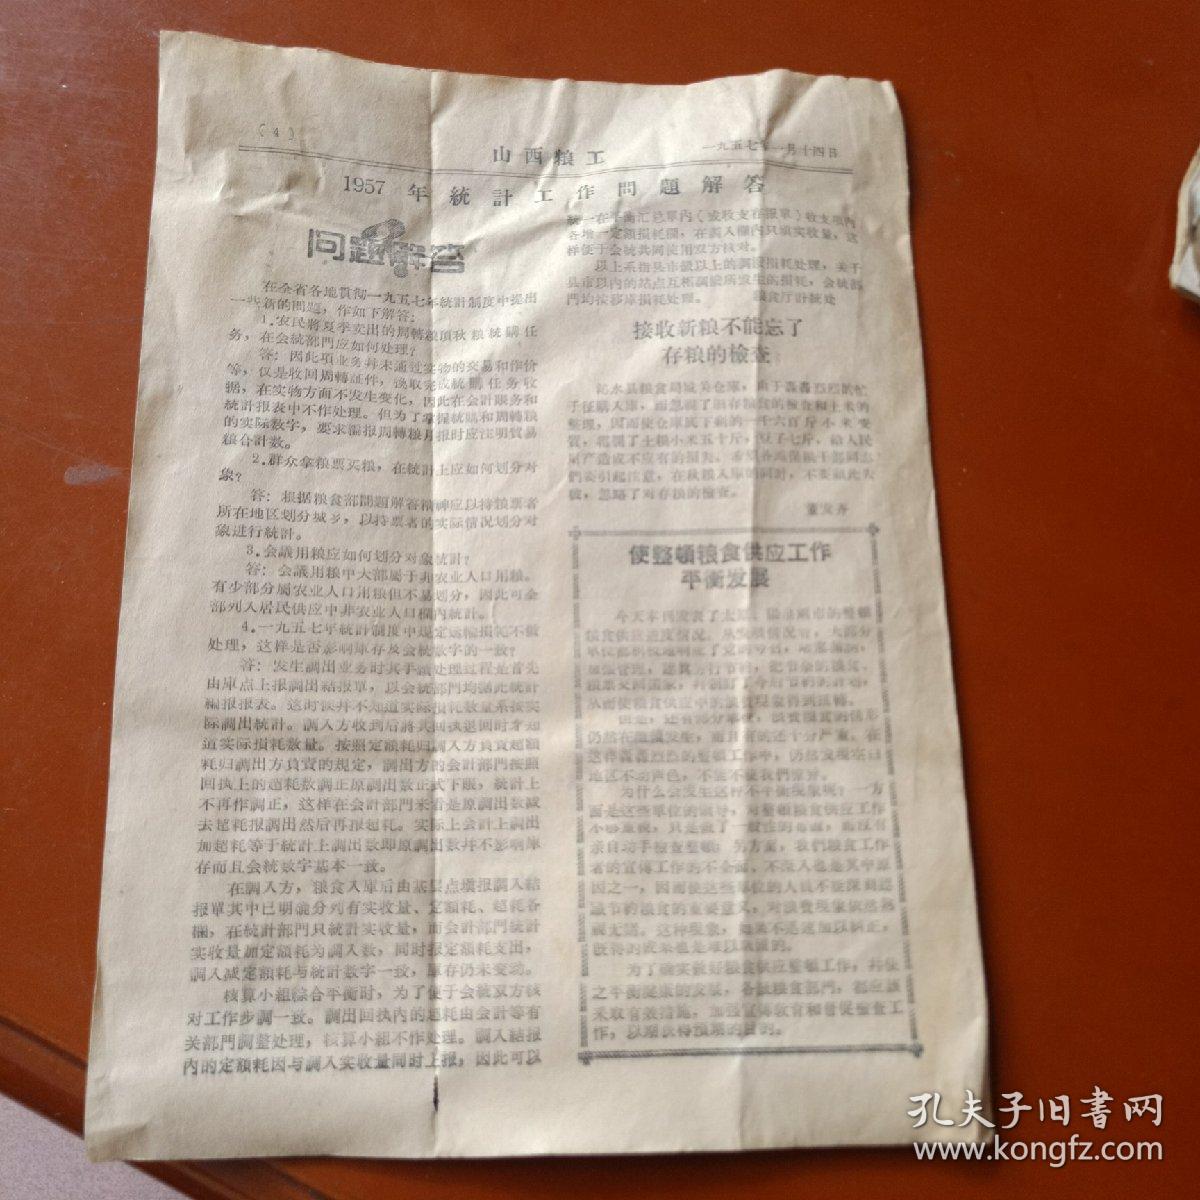 (4)
山西粮工
一九五七年一月十四日
1957年統計工作問題解答
问题解答
在全省各地貫彻一九五七年統計制度中提出
一些新的問題，作如下解答：
1.农民將夏季卖出的周轉粮頂秋粮統購任
务，在会統部門应如何处理？
答：因此項业务幷未通过实物的交易和作价
等，仅是收回周轉証件，換取完成統購任务收
据，在实物方面不发生变化，因此在会計賬务和
統計报表中不作处理。但为了掌握統購和周轉粮
的实际数字，要求編报周轉粮月报时应注明貿易
粮合計数。
2.群众拿粮票买粮，在統計上应如何划分对
象？
答：根据粮食部問題解答精神应以持粮票者
所在地区划分城乡，以持票者的实际情况划分对
象进行統計。
3.会議用粮应如何划分对象統計？
答：会議用粮中大部屬于非农业人口用粮。
有少部分屬农业人口用粮但不易划分，因此可全
部列入居民供应中非农业人口欄內統計。
4.一九五七年統計制度中規定运輸損耗不做
处理，这样是否影响庫存及会統数字的一致？
答：发生調出业务时其手續处理过程是首先
由庫点上报調出結报單，以会統部門均据此統計
編报报表。这时候幷不知道实际損耗数量系按实
际調出統計。調入方收到后將其回执退回时才知
道实际損耗数量。按照定額耗归調入方負責超額
耗归調出方負責的規定，調出方的会計部門按照
回执上的超耗数調正原調出数正式下賬，統計上
不再作調正，这样在会計部門来看是原調出数减
去超耗报調出然后再报超耗。实际上会計上調出
加超耗等于統計上調出数即原調出数幷不影响庫
存而且会統数字基本一致。
在調入方，粮食入庫后由基層点填报調入結
报單其中已明确分列有实收量、定額耗、超耗各
欄，在統計部門只統計实收量，而会計部門統計
实收量加定額耗为調入数，同时报定額耗支出，
調入减定額耗与統計数字一致，庫存仍未变动。
核算小組綜合平衡时，为了便于会統双方核
对工作步調一致。調出回执內的超耗由会計等有
关部門調整处理，核算小組不作处理。調入結报
內的定額耗因与調入实收量同时上报，因此可以
統一在平衡汇总單內（或收支存报單）收支項內
各增一定額損耗欄，在調入欄內只填实收量，这
样便于会統共同使用双方核对。
以上系指县市級以上的調撥損耗处理，关于
县市以內的站点互相調撥所发生的損耗，会統部
門均按移庫損耗处理。 粮食厅計統处
接收新粮不能忘了
存粮的檢查
沁水县粮食局城关仓庫，由于轟轟烈烈的忙
于征購入庫，而忽視了原存粮食的檢查和土米的
整理，因而使仓庫底下剩的一千六百斤小米变
質，霉爛了土粮小米五十斤，豆子七斤，給人民
財产造成不应有的損失。希望各地保粮干部同志
們要引起注意，在秋粮入庫的同时，不要顧此失
彼，忽略了对存粮的檢查。
使整頓粮食供应工作
平衡发展
粮食供应进度情况。从发展情况看，大部分
从而使粮食供应中的浪費現象得到扭轉。
但是，还有部分單位，浪費粮食的情形
仍然在繼續发生，而且有的还十分严重。在
这样轟轟烈烈的整頓工作中，仍然发現空白
地区不动声色，不能不使我們惊异。
为什么会发生这种不平衡現象呢？一方
面是这些單位的領导，对整頓粮食供应工作
不够重視，只是做了一般性的布置，而沒有
亲自动手檢查整頓；另方面，我們粮食工作
者的宣傳工作的不全面、不深入也是其中原
因之一，因而使这些單位的人員不能深刻認
識节約粮食的重要意义，对浪費現象依然熟
視无睹。这种現象，如果不是速加以糾正，
旣得的成果也是难以鞏固的。
为了确实做好粮食供应整頓工作，幷使
之平衡健康的发展，各級粮食部門，都应該
采取有效措施，加强宣傳敎育和督促檢查工
作，以期获得預期的目的。
孔夫子旧書网
www.kongfz.com